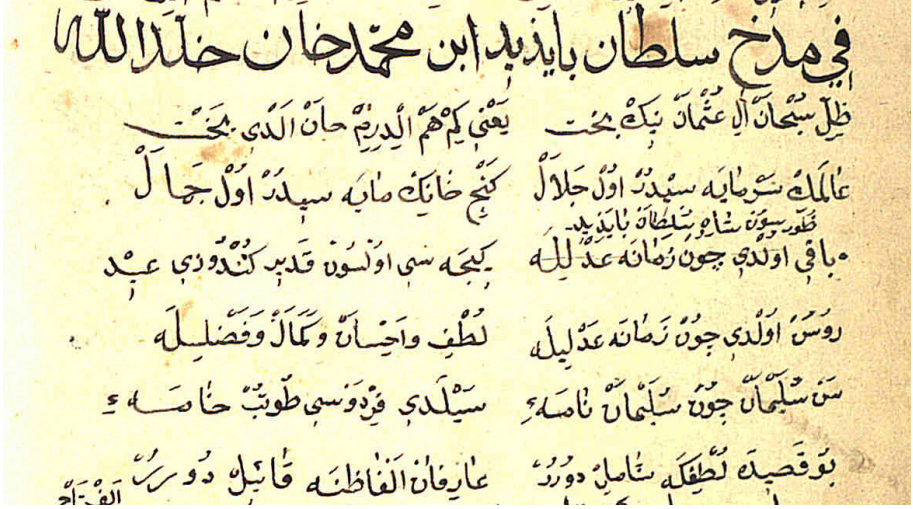 في مدح سلطان بايذيد ابن محمد خان خلد الله
ظِلِّ سُبْحَانْ آلِ عُثْمَانْ نِيكْ بخت يَعْنِي كِمْ هَمْ اِلْدِرِمْ خانْ اَلْدِي بَخْتْ
عالمك سَرْمايَه سيدُرْ اوُلْ جَلالْ كَنْجِ خانِكْ مايَه سيدُرْ اوُلْ جَمالْ
طورسون شاه سلطان بايذيد
باقي اولدي چون زمانه عدليله كيجه سي اولسون قدير كندوزي عيد
روشن اولدي چون زَمانَه عَدْلِيلَه لُطْفِ واحِسانْ وكَمالْ وفَضْلِيلَه
سَنْ سُلَيْمانْ چونْ سُلَيْمانْ ناصه سيْلَدِي فِرْدَوْسِي طوتُبْ خاصه
بو قَصيده لُطْفِكَه شامِلْ دُورُرْ عارِفانْ اَلْفاظِنَه قائِلْ دُورُرْ